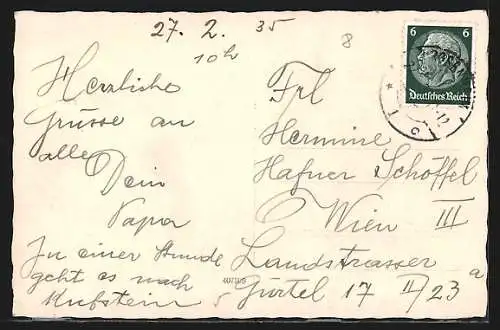 27. 2. 35
10h
8
Herzliche
Grüsse an
alle
Dein
Papa
In einer Stunde
geht es nach
Kufstein
Frl
Hermine
Hafner Schöffel
Wien III
Landstrasser
Gürtel 17 II/23a
6 6
Deutsches Reich